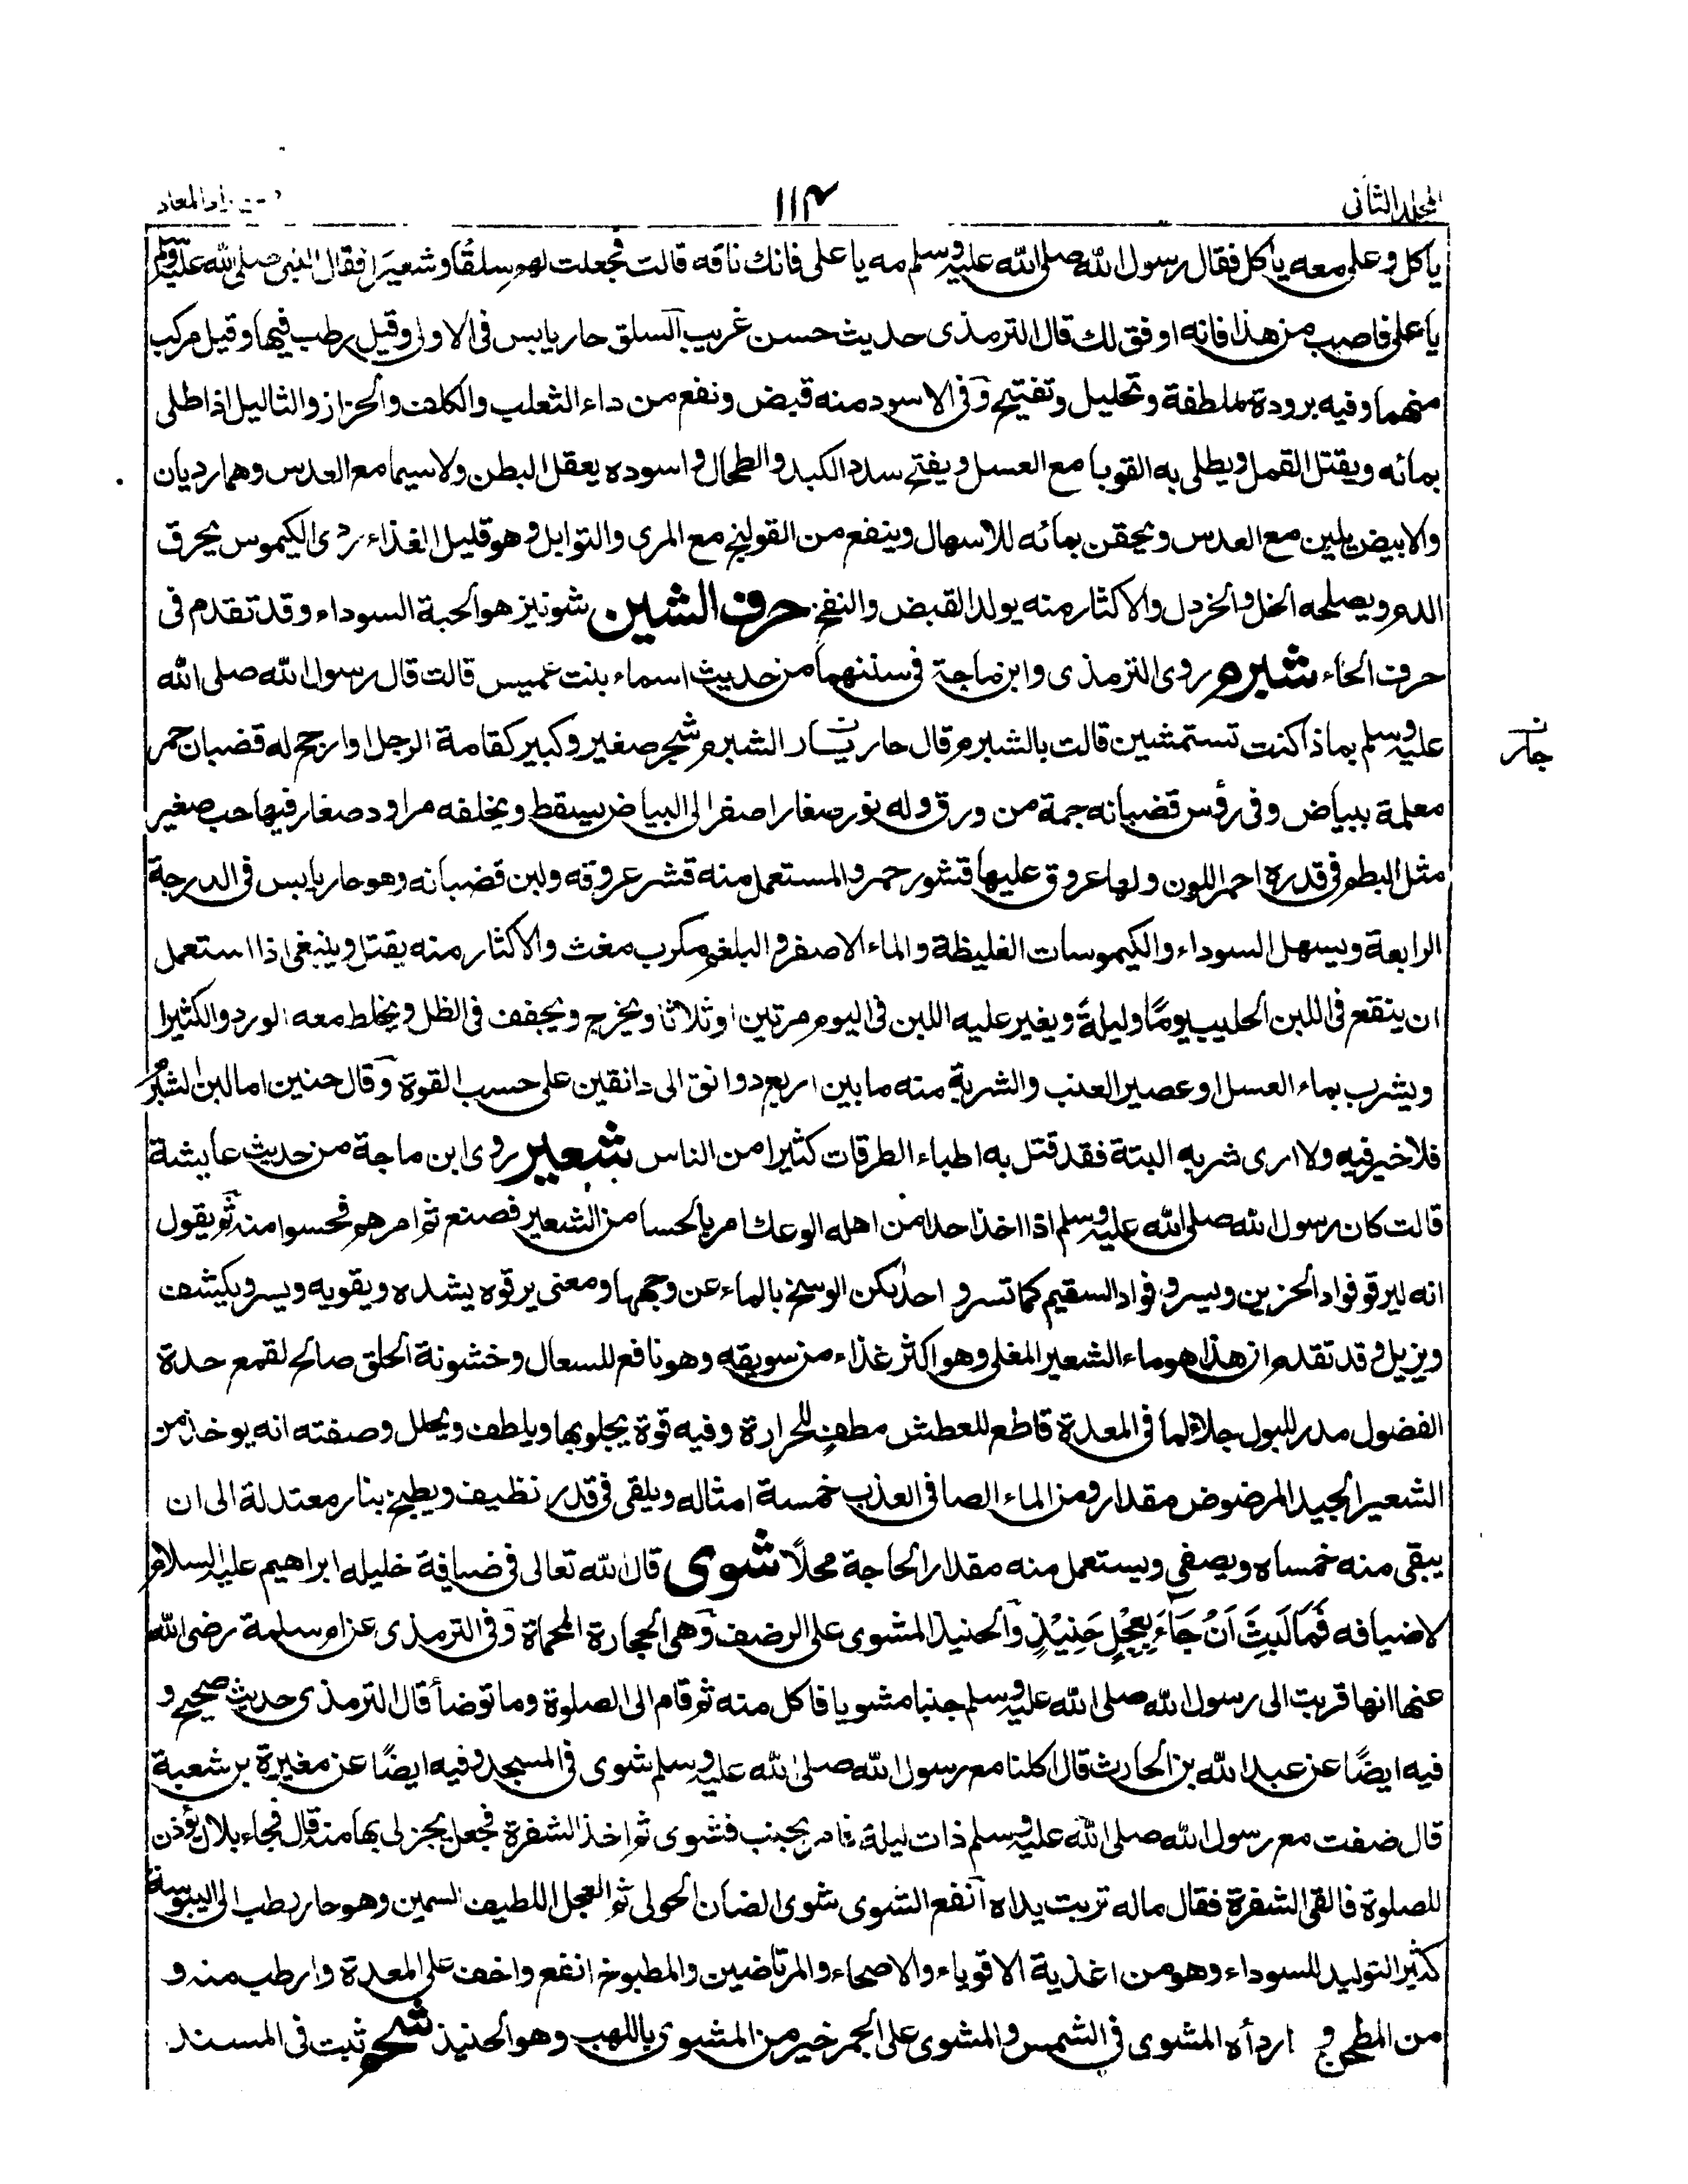 المجلد الثانى
١١٣
زاد المعاد
يأكل وعلى معه يأكل فقال رسول الله صلى الله عليه وسلم مه يا على فانك ناقه قالت فجعلت لهم سِلقًا وشعيرا فقال النبى صلى الله عليه وسلم
يا على فاصب من هذا فانه اوفق لك قال الترمذى حديث حسن غريب السلق حار يابس فى الاولى وقيل رطب فيها وقيل مركب
منهما وفيه برودة ملطفة وتحليل وتفتيح وفى الاسود منه قبض ونفع من داء الثعلب والكلف والحزاز والثاليل اذا طلى
بمائه ويقتل القمل ويطلى به القوبا مع العسل ويفتح سدد الكبد والطحال واسوده يعقل البطن ولاسيما مع العدس وهما رديان
والابيض يلين مع العدس ويحقن بمائه للاسهال وينفع من القولنج مع المرى والتوابل وهو قليل الغذاء ردى الكيموس يحرق
الدم ويصلحه الخل والخردل والاكثار منه يولد القبض والنفخ حرف الشين شونيز هو الحبة السوداء وقد تقدم فى
حرف الحاء شبرم روى الترمذى وابن ماجة فى سننهما من حديث اسماء بنت عميس قالت قال رسول الله صلى الله
عليه وسلم بماذا كنت تستمشين قالت بالشبرم قال حار يسار الشبرم شجر صغير وكبير كقامة الرجل او ارجح له قضبان حمر
جار
معلمة ببياض وفى رؤس قضبانه جمة من ورق وله نور صغار اصفر الى البياض يسقط ويخلفه مراود صغار فيها حب صغير
مثل البطم فى قدره احمر اللون ولها عروق عليها قشور حمر والمستعمل منه قشر عروقه ولبن قضبانه وهو حار يابس فى الدرجة
الرابعة ويسهل السوداء والكيموسات الغليظة والماء الاصفر والبلغم مكرب مغث والاكثار منه يقتل وينبغى اذا استعمل
ان ينقع فى اللبن الحليب يومًا وليلةً ويغير عليه اللبن فى اليوم مرتين او ثلاثا ويخرج ويجفف فى الظل ويخلط معه الورد والكثيرا
ويشرب بماء العسل او عصير العنب والشربة منه مابين اربع دوانق الى دانقين على حسب القوة وقال حنين اما لبن الشبرم
فلا خير فيه ولا ارى شربه البتة فقد قتل به اطباء الطرقات كثيرا من الناس شعير روى ابن ماجة من حديث عايشة
قالت كان رسول الله صلى الله عليه وسلم اذا اخذ احدا من اهله الوعك امر بالحسا من الشعير فصنع ثم امرهم فحسوا منه ثم يقول
انه ليرقو فواد الحزين ويسرو فواد السقيم كما تسرو احدٰىكن الوسخ بالماء عن وجهها ومعنى يرقوه يشده ويقويه ويسرو يكشف
ويزيل وقد تقدم ان هذا هو ماء الشعير المغلى وهو اكثر غذاء من سويقه وهو نافع للسعال وخشونة الحلق صالح لقمع حدة
الفضول مدر للبول جلاء لما فى المعدة قاطع للعطش مطفٍ للحرارة وفيه قوة يجلو بها ويلطف ويحلل وصفته انه يوخذ من
الشعير الجيد المرضوض مقدار ومن الماء الصافى العذب خمسة امثاله ويلقى فى قدر نظيف ويطبخ بنار معتدلة الى ان
يبقى منه خمساه ويصفى ويستعمل منه مقدار الحاجة محلاً شوى قال الله تعالى فى ضيافة خليله ابراهيم عليه السلام
لاضيافه فَمَا لَبِثَ اَنْ جَاءَ بِعِجْلٍ حَنِيْذٍ والحنيذ المشوى على الرضف وهى الحجارة المحماة وفى الترمذى عن ام سلمة رضى الله
عنها انها قربت الى رسول الله صلى الله عليه وسلم جنبا مشويا فاكل منه ثم قام الى الصلوة وما توضأ قال الترمذى حديث صحيح و
فيه ايضًا عن عبد الله بن الحارث قال اكلنا مع رسول الله صلى الله عليه وسلم شوى فى المسجد وفيه ايضًا عن مغيرة بن شعبة
قال ضفت مع رسول الله صلى الله عليه وسلم ذات ليلة فامر بجنب فشوى ثم اخذ الشفرة فجعل يجز لى بها منه قال فجاء بلال يؤذن
للصلوة فالقى الشفرة فقال ماله تربت يداه انفع الشوى شوى الضان الحولى ثم العجل اللطيف السمين وهو حار رطب الى اليبوسة
كثير التوليد للسوداء وهو من اغذية الاقوياء والاصحاء والمرتاضين والمطبوخ انفع واخف على المعدة وارطب منه و
من المطجن و اردأه المشوى فى الشمس والمشوى على الجمر خير من المشوى باللهب وهو الحنيذ شحم ثبت فى المسند